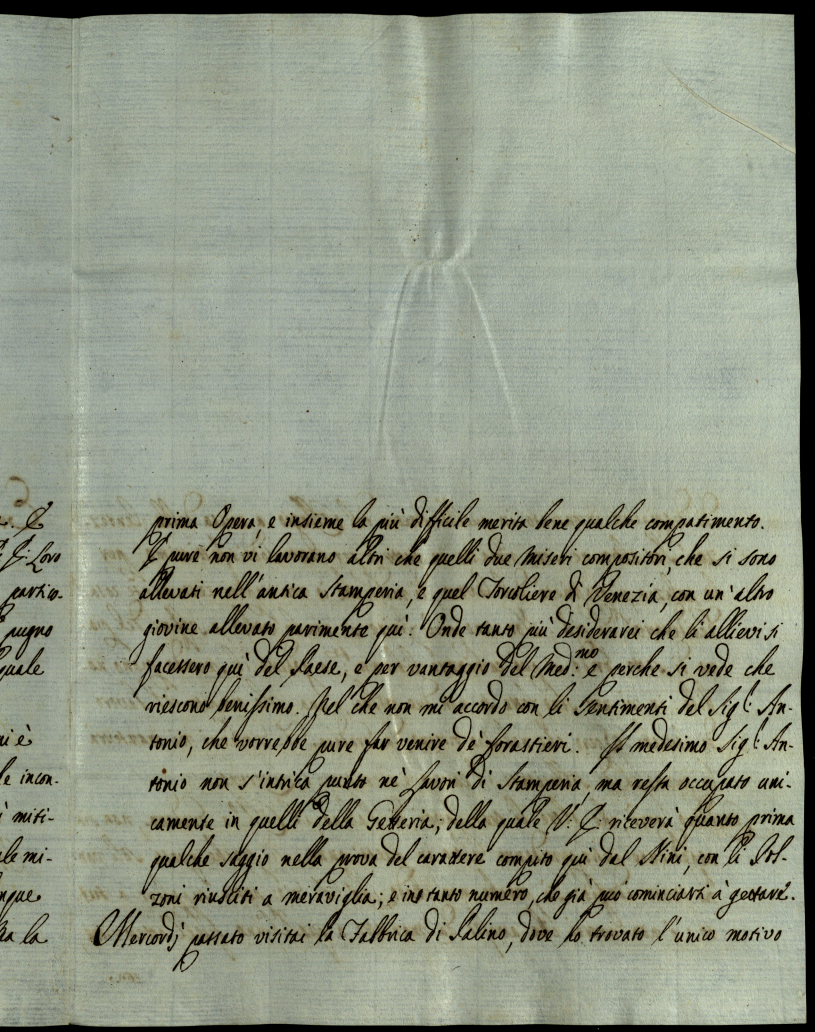 . E
E: Loro
partico-
pugno
quale
ni è
le incon-
i miti-
ale mi-
nque
la
prima Opera, e insieme la più difficile merita bene qualche compatimento.
E pure non vi lavorano altri che quelli due miseri compositori, che si sono
allevati nell'antica Stamperia, e quel Torcoliere di Venezia, con un'altro
giovine allevato parimente quì. Onde tanto più desiderarei che li allievi si
facessero quì del Paese, e per vantaggio del Med:mo e perche si vede che
riescono benissimo. Nel che non mi accordo con li Sentimenti del Sigl: An-
tonio, che vorrebbe pure far venire de' forastieri. Il medesimo Sigl: An-
tonio non s'intrica punto nè Lavori di Stamperia, ma resta occupato uni-
camente in quelli della Getteria; della quale V: E: riceverà quanto prima
qualche saggio nella prova del carattere compito quì dal Nini, con li Pol-
zoni riusciti a meraviglia; e in tanto numero, che già può cominciarsi à gettare.
Mercordì passato visitai la Fabbrica di Salino, dove hò trovato l'unico motivo